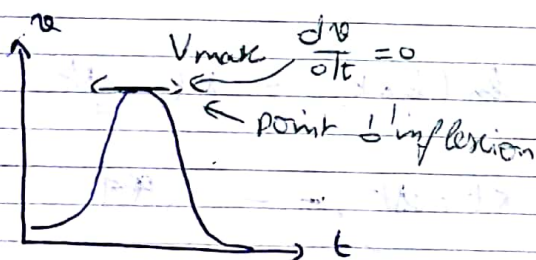 v
Vmax dv/dt = 0
point d'inflexion
t